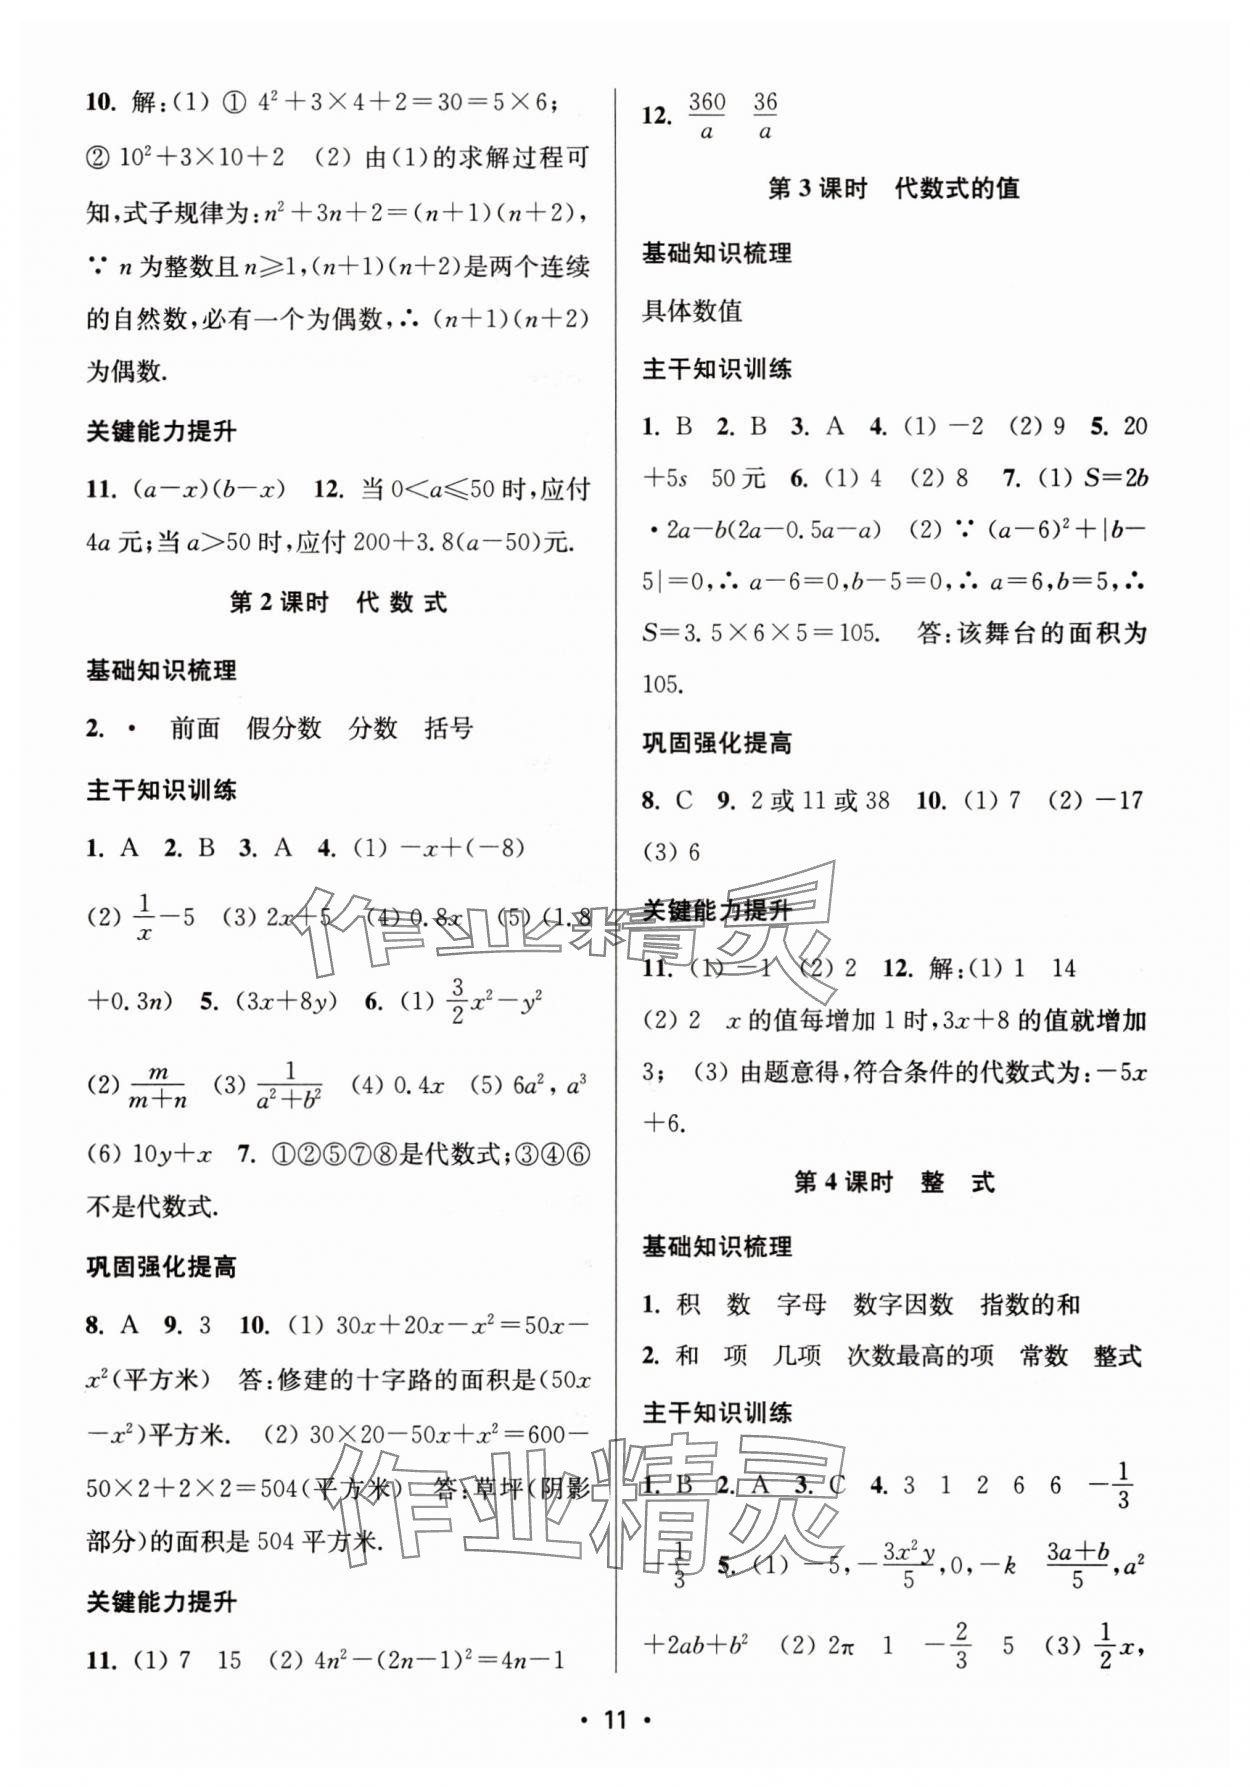 10. 解:(1) ① 4²+3×4+2=30=5×6;
② 10²+3×10+2 (2) 由(1)的求解过程可
知,式子规律为:n²+3n+2=(n+1)(n+2),
∵ n 为整数且 n≥1,(n+1)(n+2)是两个连续
的自然数,必有一个为偶数,∴ (n+1)(n+2)
为偶数.
关键能力提升
11. (a-x)(b-x) 12. 当 0<a≤50 时,应付
4a 元;当 a>50 时,应付 200+3.8(a-50)元.
第 2 课时 代 数 式
基础知识梳理
2. · 前面 假分数 分数 括号
主干知识训练
1. A 2. B 3. A 4. (1) -x+(-8)
(2) 1/x-5 (3) 2x+5 (4) 0.8x (5) (1.8
+0.3n) 5. (3x+8y) 6. (1) 3/2x²-y²
(2) m/(m+n) (3) 1/(a²+b²) (4) 0.4x (5) 6a², a³
(6) 10y+x 7. ①②⑤⑦⑧是代数式;③④⑥
不是代数式.
巩固强化提高
8. A 9. 3 10. (1) 30x+20x-x²=50x-
x²(平方米) 答:修建的十字路的面积是(50x
-x²)平方米. (2) 30×20-50x+x²=600-
50×2+2×2=504(平方米) 答:草坪(阴影
部分)的面积是 504 平方米.
关键能力提升
11. (1) 7 15 (2) 4n²-(2n-1)²=4n-1
12. 360/a 36/a
第 3 课时 代数式的值
基础知识梳理
具体数值
主干知识训练
1. B 2. B 3. A 4. (1) -2 (2) 9 5. 20
+5s 50元 6. (1) 4 (2) 8 7. (1) S=2b
·2a-b(2a-0.5a-a) (2) ∵ (a-6)²+|b-
5|=0,∴ a-6=0,b-5=0,∴ a=6,b=5,∴
S=3.5×6×5=105. 答:该舞台的面积为
105.
巩固强化提高
8. C 9. 2 或 11 或 38 10. (1) 7 (2) -17
(3) 6
关键能力提升
11. (1) -1 (2) 2 12. 解:(1) 1 14
(2) 2 x 的值每增加 1 时,3x+8 的值就增加
3; (3) 由题意得,符合条件的代数式为:-5x
+6.
第 4 课时 整 式
基础知识梳理
1. 积 数 字母 数字因数 指数的和
2. 和 项 几项 次数最高的项 常数 整式
主干知识训练
1. B 2. A 3. C 4. 3 1 2 6 6 -1/3
+1/3 5. (1) -5,-3x²y/5,0,-k (3a+b)/5,a²
+2ab+b² (2) 2π 1 -2/3 5 (3) 1/2x,
· 11 ·
作业精灵
作业精灵